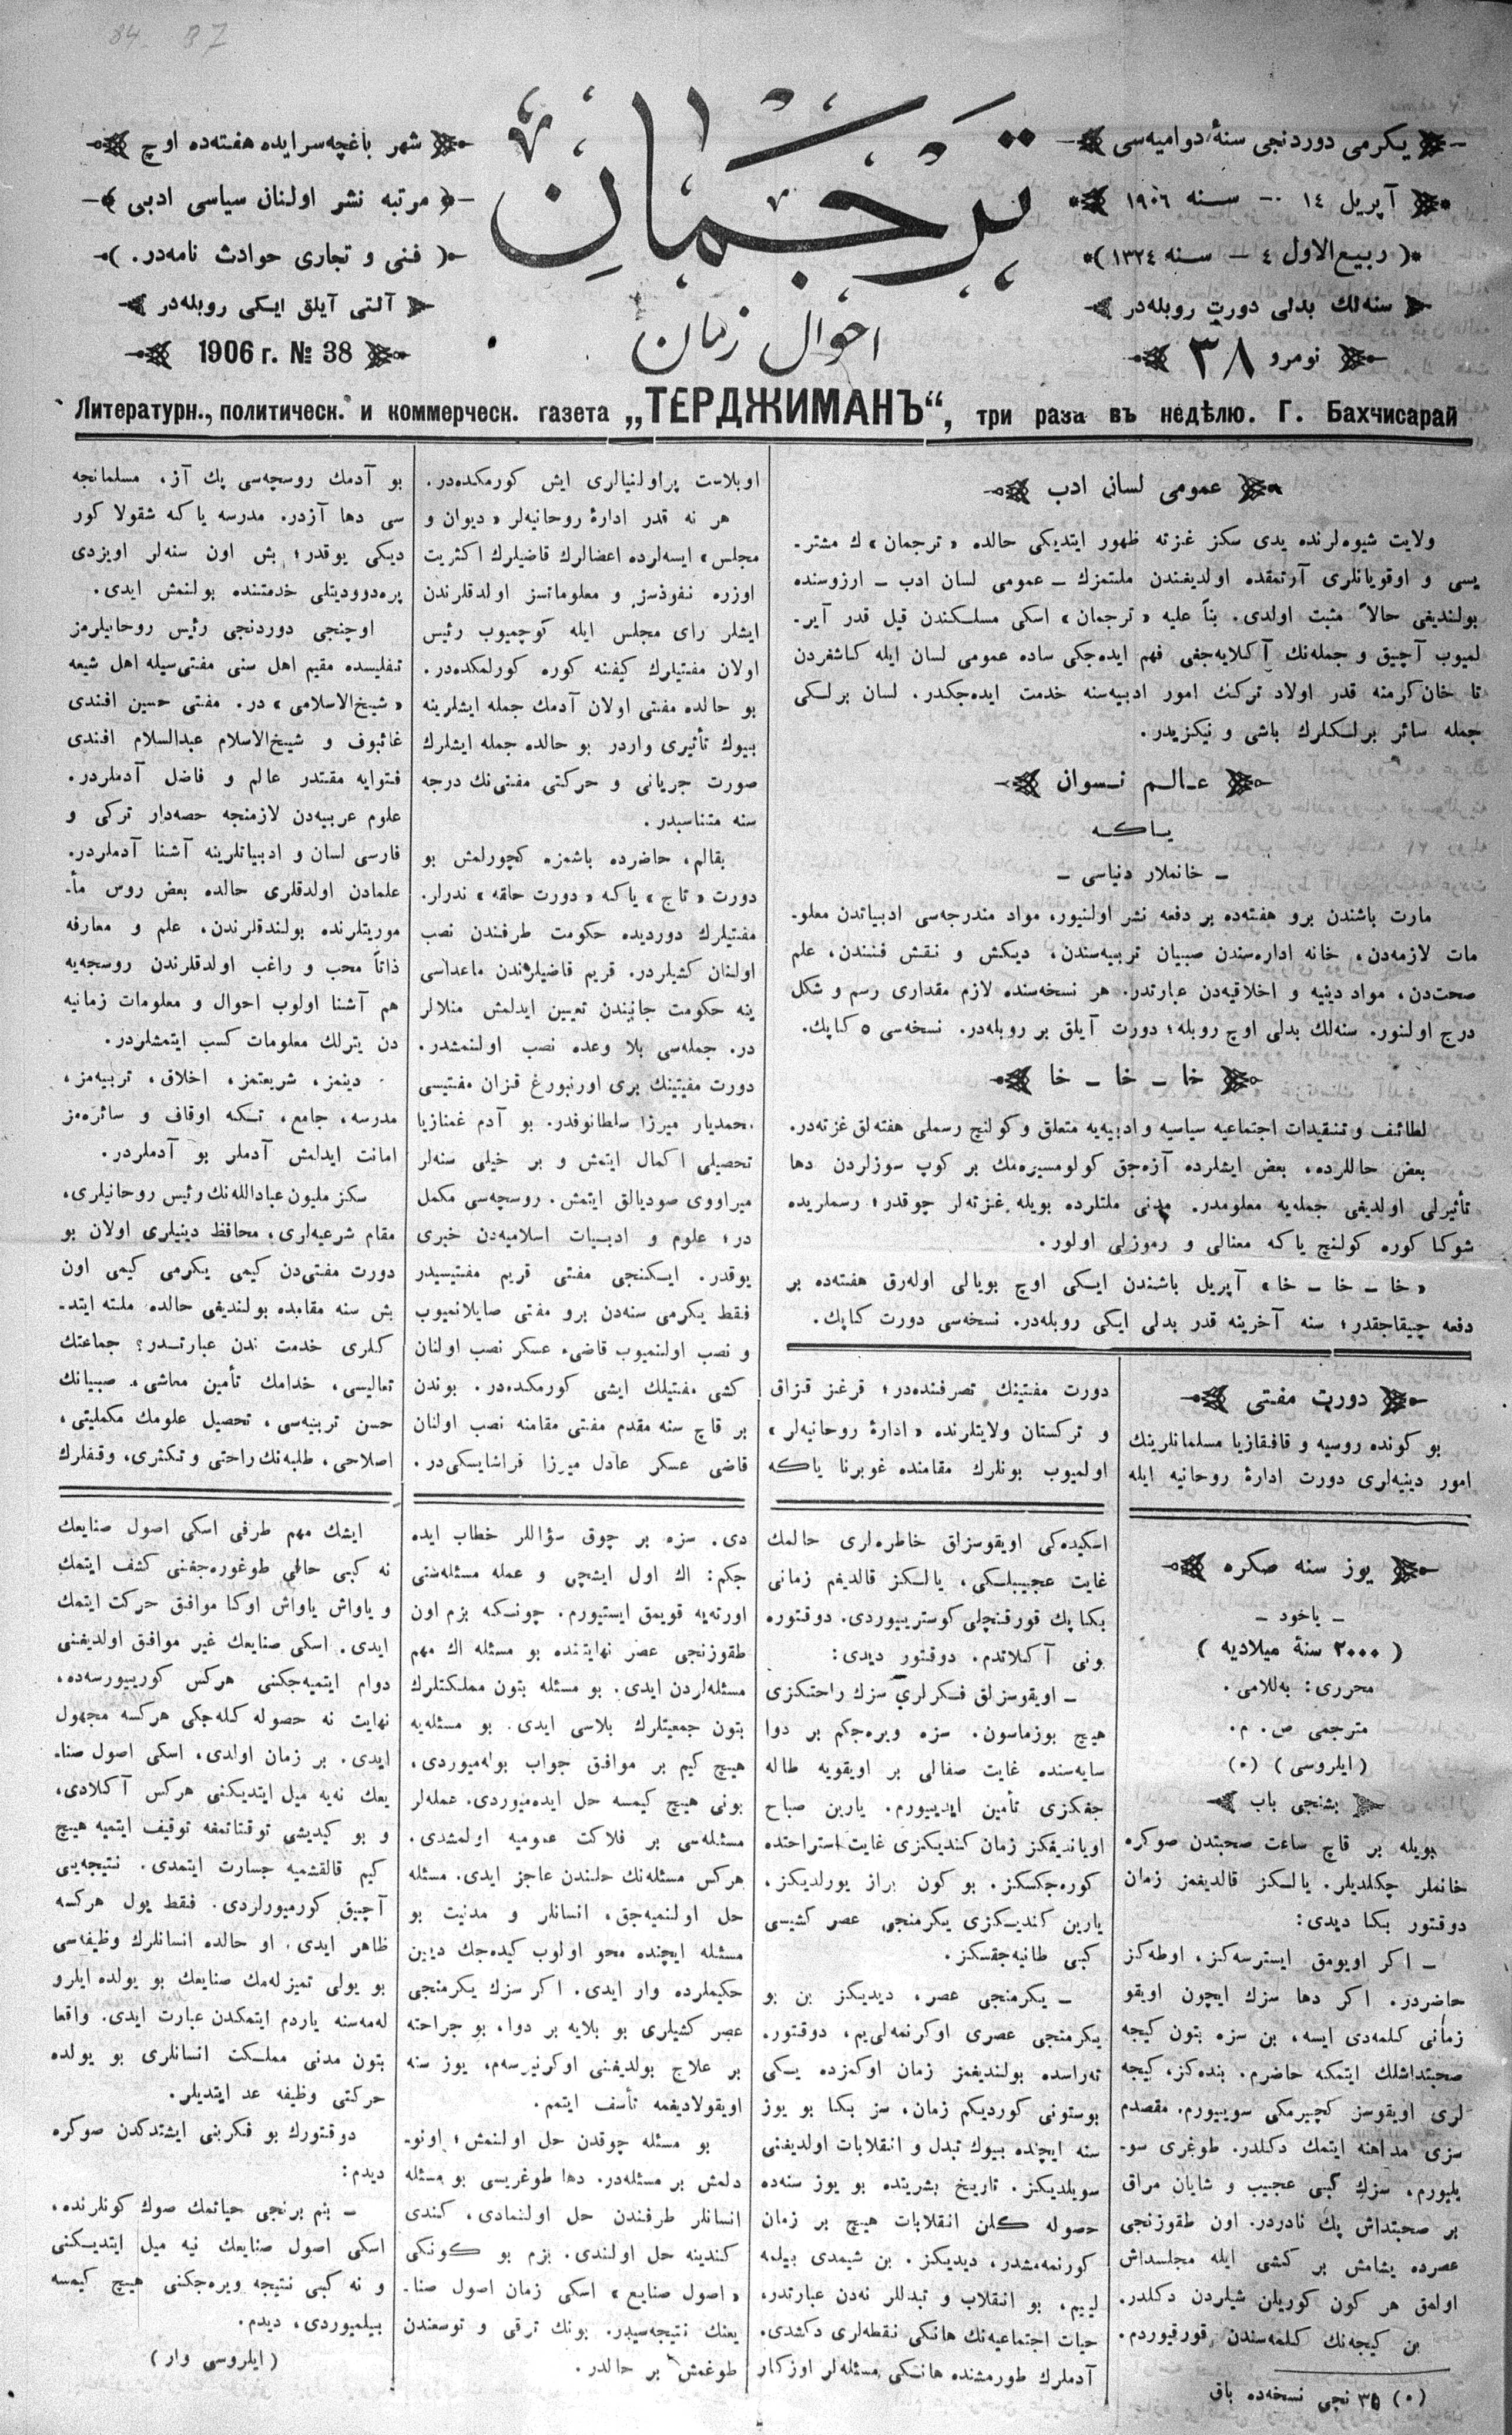 84. 87
ترجمان
احوال زمان
يكرمی دوردنجی سنهٔ دواميه‌سی
آپريل ١٤ — سـنه ١٩٠٦
( ربيع‌الاول ٤ — سـنه ١٣٢٤ )
سنه‌لك بدلی دورت روبله‌در
نومرو ٣٨
شهر باغچه‌سرايده هفته‌ده اوچ
مرتبه نشر اولنان سياسی ادبی
( فنی و تجاری حوادث نامه‌در. )
آلتی آيلق ايكی روبله‌در
1906 г. № 38
Литературн., политическ. и коммерческ. газета „ТЕРДЖИМАНЪ“, три раза въ недѣлю. Г. Бахчисарай
عمومی لسان ادب
ولايت شيوه‌لرنده يدی سكز غزته ظهور ايتديكی حالده « ترجمان » ك مشتر-
يسی و اوقويانلری آرتمقده اولديغندن ملتمزك — عمومی لسان ادب — ارزوسنده
بولنديغی حالاً مثبت اولدی. بناً عليه « ترجمان » اسكی مسلكندن قيل قدر آير-
لميوب آچيق و جمله‌نك آكلايه‌جغی فهم ايده‌جكی ساده عمومی لسان ايله كاشغردن
تا خان‌كرمنه قدر اولاد تركك امور ادبيه‌سنه خدمت ايده‌جكدر. لسان برلكی
جمله سائر برلكلرك باشی و نيكزيدر.
عـالـم نـسوان
يـاكـه
— خانملار دنياسی —
مارت باشندن برو هفته‌ده بر دفعه نشر اولنيور، مواد مندرجه‌سی ادبياتدن معلو-
مات لازمه‌دن، خانه اداره‌سندن صبيان تربيه‌سندن، ديكش و نقش فنندن، علم
صحت‌دن، مواد دينيه و اخلاقيه‌دن عبارتدر. هر نسخه‌سنده لازم مقداری رسم و شكل
درج اولنور. سنه‌لك بدلی اوچ روبله؛ دورت آيلق بر روبله‌در. نسخه‌سی ٥ كاپك.
خا — خا — خا
لطائف و تنقيدات اجتماعيه سياسيه و ادبيه‌يه متعلق و كولنچ رسملی هفته‌لق غزته‌در.
بعض حاللرده، بعض ايشلرده آزه‌جق كولومسيره‌مك بر كوپ سوزلردن دها
تأثيرلی اولديغی جمله‌يه معلومدر. مدنی ملتلرده بويله غزته‌لر چوقدر؛ رسملريده
شوكا كوره كولنچ ياكه معنالی و رموزلی اولور.
« خا — خا — خا » آپريل باشندن ايكی اوچ بويالی اوله‌رق هفته‌ده بر
دفعه چيقاجقدر؛ سنه آخرينه قدر بدلی ايكی روبله‌در. نسخه‌سی دورت كاپك.
دورت مفتی
بو كونده روسيه و قافقازيا مسلمانلرينك
امور دينيه‌لری دورت ادارهٔ روحانيه ايله
دورت مفتينك تصرفنده‌در؛ قرغز قزاق
و تركستان ولايتلرنده « ادارهٔ روحانيه‌لر »
اولميوب بونلرك مقامنده غوبرنا ياكه
اوبلاست پراولنيالری ايش كورمكده‌در.
هر نه قدر ادارهٔ روحانيه‌لر « ديوان و
مجلس » ايسه‌لرده اعضالرك قاضيلرك اكثريت
اوزره نفوذسز و معلوماتسز اولدقلرندن
ايشلر رای مجلس ايله كوچميوب رئيس
اولان مفتيلرك كيفنه كوره كورلمكده‌در.
بو حالده مفتی اولان آدمك جمله ايشلرينه
بيوك تأثيری واردر بو حالده جمله ايشلرك
صورت جريانی و حركتی مفتی‌نك درجه
سنه متناسبدر.
بقالم، حاضرده باشمزه كچورلمش بو
دورت « تاج » ياكه « دورت حلقه » ندرلر.
مفتيلرك دورديده حكومت طرفندن نصب
اولنان كشيلردر. قريم قاضيلرندن ماعداسی
ينه حكومت جانبندن تعيين ايدلمش منلالر
در. جمله‌سی بلا وعده نصب اولنمشدر.
دورت مفتينك بری اورنبورغ قزان مفتيسی
محمديار ميرزا سلطانوفدر. بو آدم غمنازيا
تحصيلی اكمال ايتمش و بر خيلی سنه‌لر
ميراووی صوديالق ايتمش. روسچه‌سی مكمل
در؛ علوم و ادبيات اسلاميه‌دن خبری
يوقدر. ايكنجی مفتی قريم مفتيسيدر
فقط يكرمی سنه‌دن برو مفتی صايلانميوب
و نصب اولنميوب قاضیء عسكر نصب اولنان
كشی مفتيلك ايشی كورمكده‌در. بوندن
بر قاچ سنه مقدم مفتی مقامنه نصب اولنان
قاضی عسكر عادل ميرزا قراشايسكی‌در.
بو آدمك روسچه‌سی پك آز، مسلمانجه
سی دها آزدر. مدرسه ياكه شقولا كور
ديكی يوقدر؛ بش اون سنه‌لر اويزدی
پره‌دووديتلی خدمتنده بولنمش ايدی.
اوچنجی دوردنجی رئيس روحانيلرمز
تفليسده مقيم اهل سنی مفتی‌سيله اهل شيعه
« شيخ‌الاسلامی » در. مفتی حسين افندی
غائبوف و شيخ‌الاسلام عبدالسلام افندی
فتوايه مقتدر عالم و فاضل آدملردر.
علوم عربيه‌دن لازمنجه حصه‌دار تركی و
فارسی لسان و ادبياتلرينه آشنا آدملردر.
علمادن اولدقلری حالده بعض روس مأ-
موريتلرنده بولندقلرندن، علم و معارفه
ذاتاً محب و راغب اولدقلرندن روسجه‌يه
هم آشنا اولوب احوال و معلومات زمانيه
دن يترلك معلومات كسب ايتمشلردر.
دينمز، شريعتمز، اخلاق، تربيه‌مز،
مدرسه، جامع، تكه اوقاف و سائره‌مز
امانت ايدلمش آدملر بو آدملردر.
سكز مليون عبادالله‌نك رئيس روحانيلری،
مقام شرعيه‌لری، محافظ دينيلری اولان بو
دورت مفتی‌دن كيمی يكرمی كيمی اون
بش سنه مقامده بولنديغی حالده ملته ايتد-
كلری خدمت ندن عبارتدر؟ جماعتك
تعاليسی، خدامك تأمين معاشی، صبيانك
حسن تربيه‌سی، تحصيل علومك مكمليتی،
اصلاحی، طلبه‌نك راحتی و تكثری، وقفلرك
يوز سنه صكره
— ياخود —
( ٢٠٠٠ سنهٔ ميلاديه )
محرری: به‌للامی.
مترجمی ص. م.
( ايلروسی ) (٥)
بشنجی باب
بويله بر قاچ ساعت صحبتدن صوكره
خانملر چكلديلر. يالكز قالديغمز زمان
دوقتور بكا ديدی:
— اكر اويومق ايسترسه‌كز، اوطه‌كز
حاضردر. اكر دها سزك ايچون اويقو
زمانی كلمه‌دی ايسه، بن سزه بتون كيجه
صحبتداشلك ايتمكه حاضرم. بنده‌كز، كيجه
لری اويقوسز كچيرمكی سوييورم. مقصدم
سزی مداهنه ايتمك دكلدر. طوغری سو-
يليورم، سزك كبی عجيب و شايان مراق
بر صحبتداش پك نادردر. اون طقوزنجی
عصرده يشامش بر كشی ايله مجلسداش
اولمق هر كون كوريلن شيلردن دكلدر.
بن كيجه‌نك كلمه‌سندن قورقيوردم.
(٥) ٣٥ نجی نسخه‌ده باق
اسكيده‌كی اويقوسزلق خاطره‌لری حالمك
غايت عجيبلكی، يالكز قالديغم زمانی
بكا پك قورقنچلی كوستريييوردی. دوقتوره
بونی آكلاتدم. دوقتور ديدی:
— اويقوسزلق فكرلری سزك راحتكزی
هيچ بوزماسون. سزه ويره‌جكم بر دوا
سايه‌سنده غايت صفالی بر اويقويه طاله
جغكزی تأمين ايدييورم. يارين صباح
اوياندیغكز زمان كنديكزی غايت استراحتده
كوره‌جكسكز. بو كون براز يورلديكز،
يارين كنديكزی يكرمنجی عصر كشيسی
كبی طانيه‌جقسكز.
— يكرمنجی عصر، ديديكز بن بو
يكرمنجی عصری اوكرنمه‌لی‌يم، دوقتور.
ته‌راسده بولنديغمز زمان اوكمزده يكی
بوستونی كورديكم زمان، سز بكا بو يوز
سنه ايچنده بيوك تبدل و انقلابات اولديغنی
سويلديكز. تاريخ بشريتده بو يوز سنه‌ده
حصوله كلن انقلابات هيچ بر زمان
كورنمه‌مشدر، ديديكز. بن شيمدی بيلمه
لييم، بو انقلاب و تبدللر نه‌دن عبارتدر،
حيات اجتماعيه‌نك هانكی نقطه‌لری دكشدی.
آدملرك طورمشنده هانكی مسئله‌لر اوزكار
دی. سزه بر چوق سؤاللر خطاب ايده
جكم: اك اول ايشچی و عمله مسئله‌سنی
اورته‌يه قويمق ايستيورم. چونكه بزم اون
طقوزنجی عصر نهايتنده بو مسئله اك مهم
مسئله‌لردن ايدی. بو مسئله بتون مملكتلرك
بتون جمعيتلرك بلاسی ايدی. بو مسئله‌يه
هيچ كيم بر موافق جواب بوله‌ميوردی،
بونی هيچ كيمسه حل ايده‌ميوردی. عمله‌لر
مسئله‌سی بر فلاكت عموميه اولمشدی.
هركس مسئله‌نك حلندن عاجز ايدی. مسئله
حل اولنميه‌جق، انسانلر و مدنيت بو
مسئله ايچنده محو اولوب كيده‌جك ديين
حكيملرده وار ايدی. اكر سزك يكرمنجی
عصر كشيلری بو بلايه بر دوا، بو جراحته
بر علاج بولديغنی اوكرنيرسه‌م، يوز سنه
اويقولاديغمه تأسف ايتمم.
بو مسئله چوقدن حل اولنمش؛ اونو-
دلمش بر مسئله‌در. دها طوغريسی بو مسئله
انسانلر طرفندن حل اولنمادی، كندی
كندينه حل اولندی. بزم بو كونكی
« اصول صنايع » اسكی زمان اصول صنا-
يعنك نتيجه‌سيدر. بونك ترقی و توسعندن
طوغمش بر حالدر.
ايشك مهم طرفی اسكی اصول صنايعك
نه كبی حالی طوغوره‌جغنی كشف ايتمك
و ياواش ياواش اوكا موافق حركت ايتمك
ايدی. اسكی صنايعك غير موافق اولديغنی
دوام ايتميه‌جكنی هركس كورييورسه‌ده،
نهايت نه حصوله كله‌جكی هركسه مجهول
ايدی. بر زمان اولدی، اسكی اصول صنا-
يعك نه‌يه ميل ايتديكنی هركس آكلادی،
و بو كيديشی توقتاتمغه توقيف ايتميه هيچ
كيم قالقشميه جسارت ايتمدی. نتيجه‌يی
آچيق كورميورلردی. فقط يول هركسه
ظاهر ايدی. او حالده انسانلرك وظيفه‌سی
بو يولی تميزله‌مك صنايعك بو يولده ايلرو
له‌مه‌سنه ياردم ايتمكدن عبارت ايدی. واقعا
بتون مدنی مملكت انسانلری بو يولده
حركتی وظيفه عد ايتديلر.
دوقتورك بو فكرينی ايشتدكدن صوكره
ديدم:
— بنم برنجی حياتمك صوك كونلرنده،
اسكی اصول صنايعك نيه ميل ايتديكنی
و نه كبی نتيجه ويره‌جكنی هيچ كيمسه
بيلميوردی، ديدم.
( ايلروسی وار )